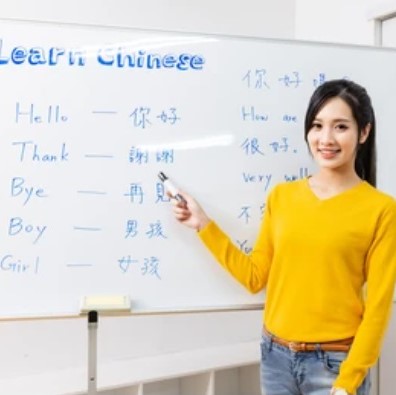 Learn Chinese
Hello — 你好
Thank — 謝謝
Bye — 再見
Boy — 男孩
Girl — 女孩
你好嗎
How are
很好.
very well
不